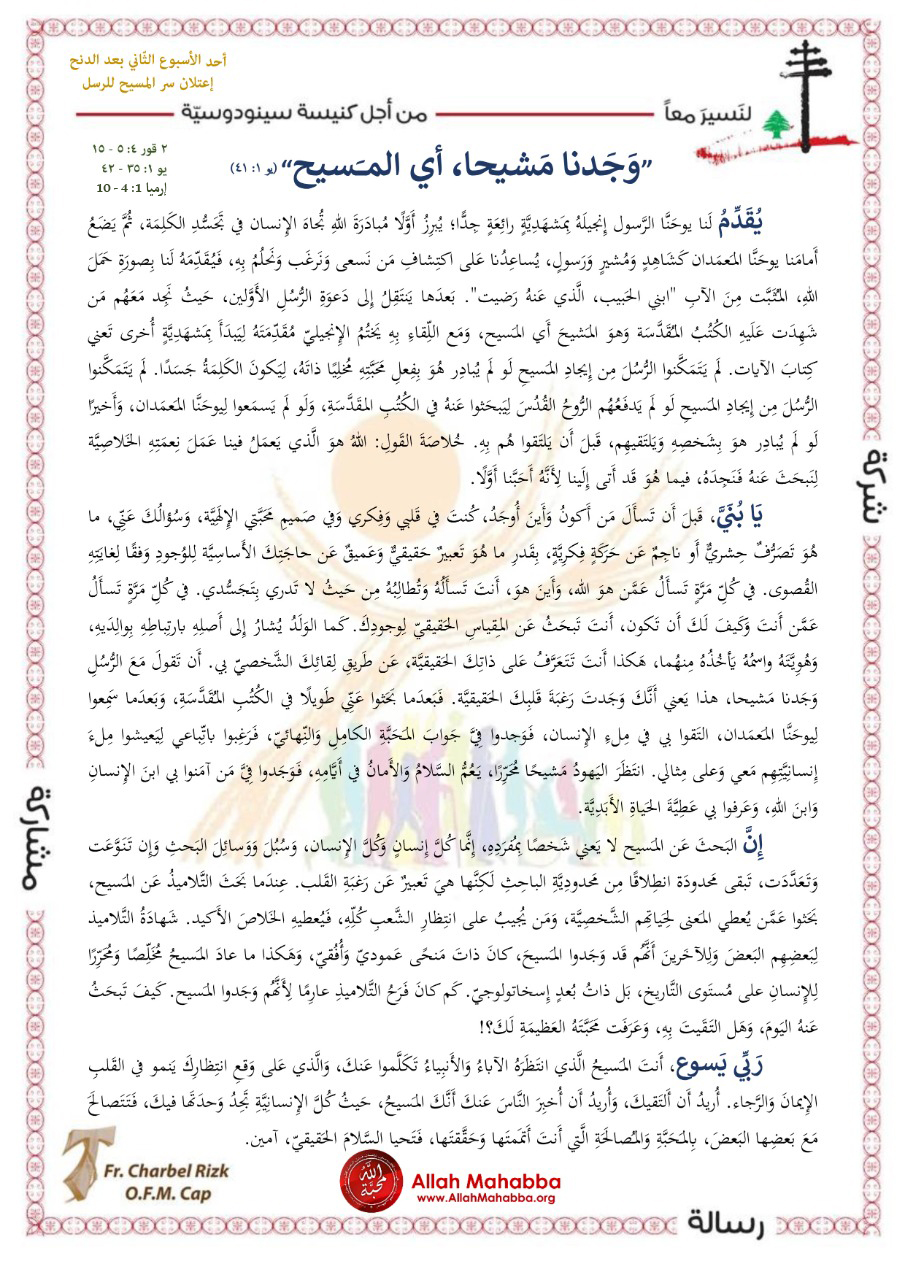 أحد الأسبوع الثّاني بعد الدنح
إعتلان سر المسيح للرسل
لنَسيرَ معاً
من أجل كنيسة سينودوسيّة
٢ قور ٤: ٥ - ١٥
يو ١: ٣٥ - ٤٢
إرميا 1: 4 - 10
”وَجَدنا مَشيحا، أي المَسيح“ (يو ١: ٤١)
يُقَدِّمُ لَنا يوحَنَّا الرَّسول إنجيلَهُ بِمَشهَدِيَّةٍ رائِعَةٍ جِدًّا؛ يُبرِزُ أوَّلًا مُبادَرَةَ اللهِ تُجاهَ الإنسان في تَجَسُّدِ الكَلِمَة، ثُمَّ يَضَعُ
أمامَنا يوحَنَّا المَعمَدان كَشاهِدٍ وَمُشيرٍ وَرَسولٍ، يُساعِدُنا عَلى اكتِشافِ مَن نَسعى وَنَرغَب وَنَحلُمُ بِهِ، فَيُقَدِّمُهُ لَنا بِصورَةِ حَمَلَ
اللهِ، المُثَبَّت مِنَ الآبِ "ابني الحَبيب، الَّذي عَنهُ رَضيت". بَعدَها يَنتَقِلُ إلى دَعوَةِ الرُّسُلِ الأَوَّلين، حَيثُ نَجِد مَعَهُم مَن
شَهِدَت عَلَيهِ الكُتُبُ المُقَدَّسَة وَهوَ المَشيحَ أي المَسيح، وَمَع اللِّقاءِ بِهِ يَختُمُ الإنجيليّ مُقَدِّمَتَهُ لِيَبدَأَ بِمَشهَدِيَّةٍ أُخرى تَعني
كِتابَ الآيات. لَم يَتَمَكَّنوا الرُّسُلَ مِن إيجادِ المَسيحِ لَو لَم يُبادِر هُوَ بِفِعلِ مَحَبَّتِهِ مُخلِيًا ذاتَهُ، لِيَكونَ الكَلِمَةُ جَسَدًا. لَم يَتَمَكَّنوا
الرُّسُلَ مِن إيجادِ المَسيحِ لَو لَم يَدفَعُهُم الرُّوحُ القُدُسَ لِيَبحَثوا عَنهُ في الكُتُبِ المُقَدَّسَةِ، وَلَو لَم يَسمَعوا لِيوحَنَّا المَعمَدان، وَأخيرًا
لَو لَم يُبادِر هوَ بِشَخصِهِ وَيَلتَقيهِم، قَبلَ أن يَلتَقوا هُم بِهِ. خُلاصَةَ القَولِ: اللهُ هوَ الَّذي يَعمَلُ فينا عَمَلَ نِعمَتِهِ الخَلاصِيَّة
لِنَبحَثَ عَنهُ فَنَجِدَهُ، فيما هُوَ قَد أتى إلَينا لِأنَّهُ أحَبَّنا أوَّلًا.
يَا بُنَيَّ، قَبلَ أن تَسألَ مَن أكونُ وَأينَ أُوجَدُ، كُنتَ في قَلبي وَفِكري وَفي صَميمِ مَحَبَّتي الإلَهِيَّة، وَسُؤالُكَ عَنِّي، ما
هُوَ تَصَرُّفٌ حِشريٌّ أو ناجِمٌ عَن حَرَكَةٍ فِكرِيَّةٍ، بِقَدرِ ما هُوَ تَعبيرٌ حَقيقيٌّ وَعَميقٌ عَن حاجَتِكَ الأساسِيَّة لِلوُجودِ وَفقًا لِغايَتِهِ
القُصوى. في كُلِّ مَرَّةٍ تَسألُ عَمَّن هوَ الله، وَأينَ هوَ، أنتَ تَسألُهُ وَتُطالِبُهُ مِن حَيثُ لا تَدري بِتَجَسُّدي. في كُلِّ مَرَّةٍ تَسألُ
عَمَّن أنتَ وَكَيفَ لَكَ أن تَكون، أنتَ تَبحَثُ عَن المِقياسِ الحَقيقيّ لِوجودِكَ. كَما الوَلَدُ يُشارُ إلى أصلِهِ بارتِباطِهِ بِوالِدَيهِ،
وَهُوِيَّتَهُ واسمُهُ يَأخُذُهُ مِنهُما، هَكذا أنتَ تَتَعَرَّفُ عَلى ذاتِكَ الحَقيقيَّة، عَن طَريقِ لِقائِكَ الشَّخصيّ بي. أن تَقولَ مَعَ الرُّسُلِ
وَجَدنا مَشيحا، هذا يَعني أنَّكَ وَجَدتَ رَغبَةَ قَلبِكَ الحَقيقيَّة. فَبَعدَما بَحَثوا عَنِّي طَويلًا في الكُتُبِ المُقَدَّسَةِ، وَبَعدَما سَمِعوا
لِيوحَنَّا المَعمَدان، التَقوا بي في مِلءِ الإنسان، فَوَجدوا فِيَّ جَوابَ المَحَبَّةِ الكامِلِ وَالنِّهائيّ، فَرَغِبوا باتِّباعي لِيَعيشوا مِلءَ
إنسانِيَّتِهِم مَعي وَعَلى مِثالي. انتَظَرَ اليَهودُ مَشيحًا مُحَرِّرًا، يَعُمُّ السَّلامُ وَالأمانُ في أيَّامِهِ، فَوَجَدوا فِيَّ مَن آمَنوا بي ابنَ الإنسانِ
وَابنَ اللهِ، وَعَرفوا بي عَطِيَّةَ الحَياةِ الأبَدِيَّة.
إنَّ البَحثَ عَن المَسيح لا يَعني شَخصًا بِمُفرَدِهِ، إنَّما كُلَّ إنسانٍ وَكُلَّ الإنسان، وَسُبُلَ وَوَسائِلَ البَحثِ وَإن تَنَوَّعَت
وَتَعَدَّدَت، تَبقى مَحدودَة انطِلاقًا مِن مَحدودِيَّةِ الباحِثِ لَكِنَّها هِيَ تَعبيرٌ عَن رَغبَةِ القَلب. عِندَما بَحَثَ التَّلاميذُ عَن المَسيح،
بَحَثوا عَمَّن يُعطي المَعنى لِحَياتِهِم الشَّخصِيَّة، وَمَن يُجيبُ على انتِظارِ الشَّعبِ كُلِّهِ، فَيُعطيهِ الخَلاصَ الأكيد. شَهادَةُ التَّلاميذ
لِبَعضِهِم البَعضَ وَلِلآخَرينَ أنَّهُم قَد وَجَدوا المَسيحَ، كانَ ذاتَ مَنحًى عَموديّ وَأُفُقيّ، وَهَكذا ما عادَ المَسيحُ مُخَلِّصًا وَمُحَرِّرًا
لِلإنسانِ على مُستَوى التَّاريخ، بَل ذاتُ بُعدٍ إسخاتولوجيّ. كَم كانَ فَرَحُ التَّلاميذِ عارِمًا لِأنَّهُم وَجَدوا المَسيح. كَيفَ تَبحَثُ
عَنهُ اليَومَ، وَهَل التَقَيتَ بِهِ، وَعَرَفتَ مَحَبَّتَهُ العَظيمَةَ لَكَ؟!
رَبِّي يَسوع، أنتَ المَسيحُ الَّذي انتَظَرَهُ الآباءُ وَالأنبِياءُ تَكَلَّموا عَنكَ، وَالَّذي عَلى وَقعِ انتِظارِكَ يَنمو في القَلبِ
الإيمانَ وَالرَّجاء. أُريدُ أن ألتَقيكَ، وَأُريدُ أن أُخبِرَ النَّاسَ عَنكَ أنَّكَ المَسيحُ، حَيثُ كُلَّ الإنسانِيَّةِ تَجِدُ وَحدَتَها فيكَ، فَتَتَصالَحَ
مَعَ بَعضِها البَعضَ، بِالمَحَبَّةِ وَالمُصالَحَةِ الَّتي أنتَ أتمَمتَها وَحَقَّقتَها، فَتَحيا السَّلامَ الحَقيقيّ، آمين.
شركة
مشاركة
رسالة
Fr. Charbel Rizk
O.F.M. Cap
الله محبة
Allah Mahabba
www.AllahMahabba.org